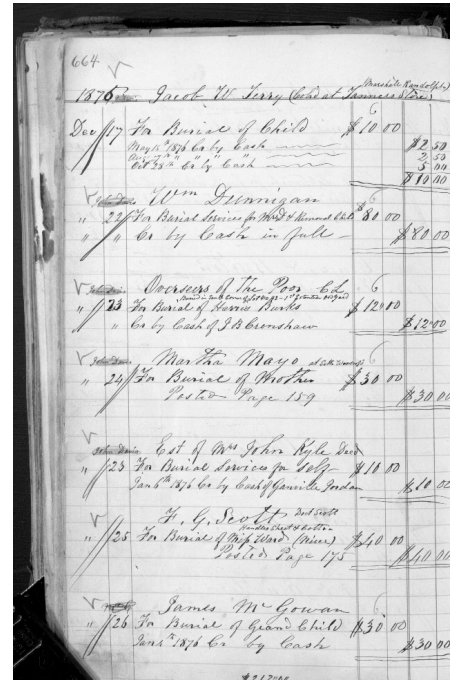 664
(Marshall Randolph)
1875 Jacob W Terry (Cold at Francis Store)
6
Dec 17 For Burial of Child $10 00
May 15th 1876 Cr by Cash $2.50
Aug 7th " " " " 2.50
Oct 28th " Cr " by " Cash " 5.00
$10 00
Wm Dunnigan 6
" 22 For Burial Services for & Removal Child $80 00
" " Cr by Cash in full $80 00
John Davis Overseers of the Poor C.L. 6
" 23 For Burial of Harris Burks $12 00
" Cr by Cash of J B Crenshaw $12 00
John Davis Martha Mayo at 6
" 24 For Burial of Mother $30 00
Posted Page 159 $30 00
John Davis Est of Mrs John Kyle Decd
" 23 For Burial Services for self $10 00
Jan 6th 1876 Cr by Cash of Granville Jordan $10 00
F. G. Scott
" 25 For Burial of Miss Ward (Niece) $40 00
Posted Page 175 $40 00
James McGowan 6
" 26 For Burial of Grand Child $30 00
Jan 4th 1876 Cr by Cash $30 00
$212 00